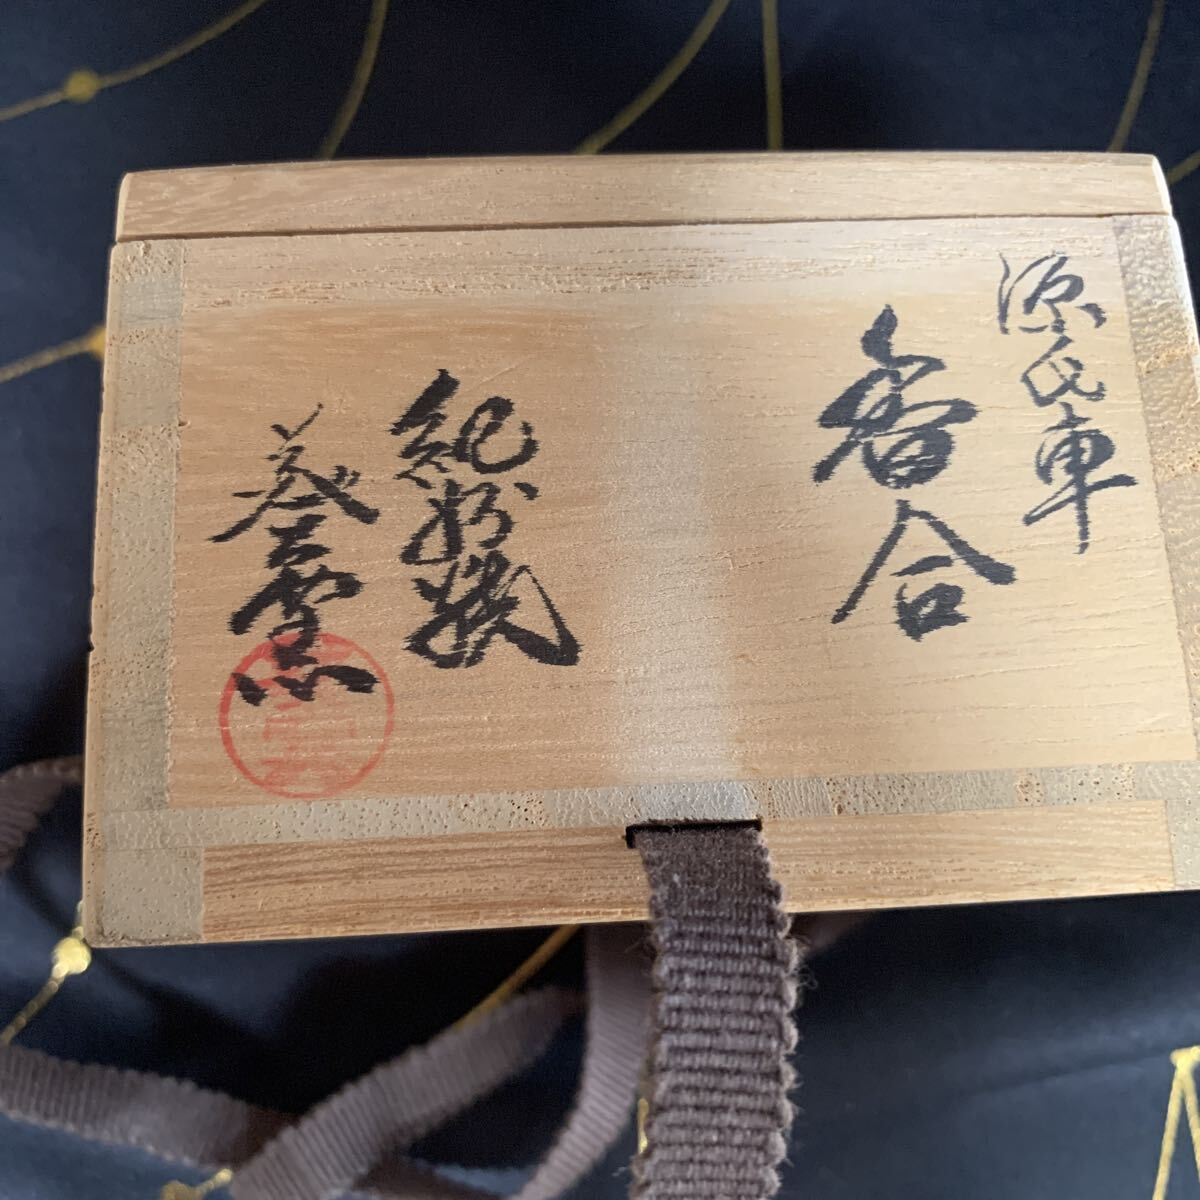 源氏車
香合
紀州焼
葵窯